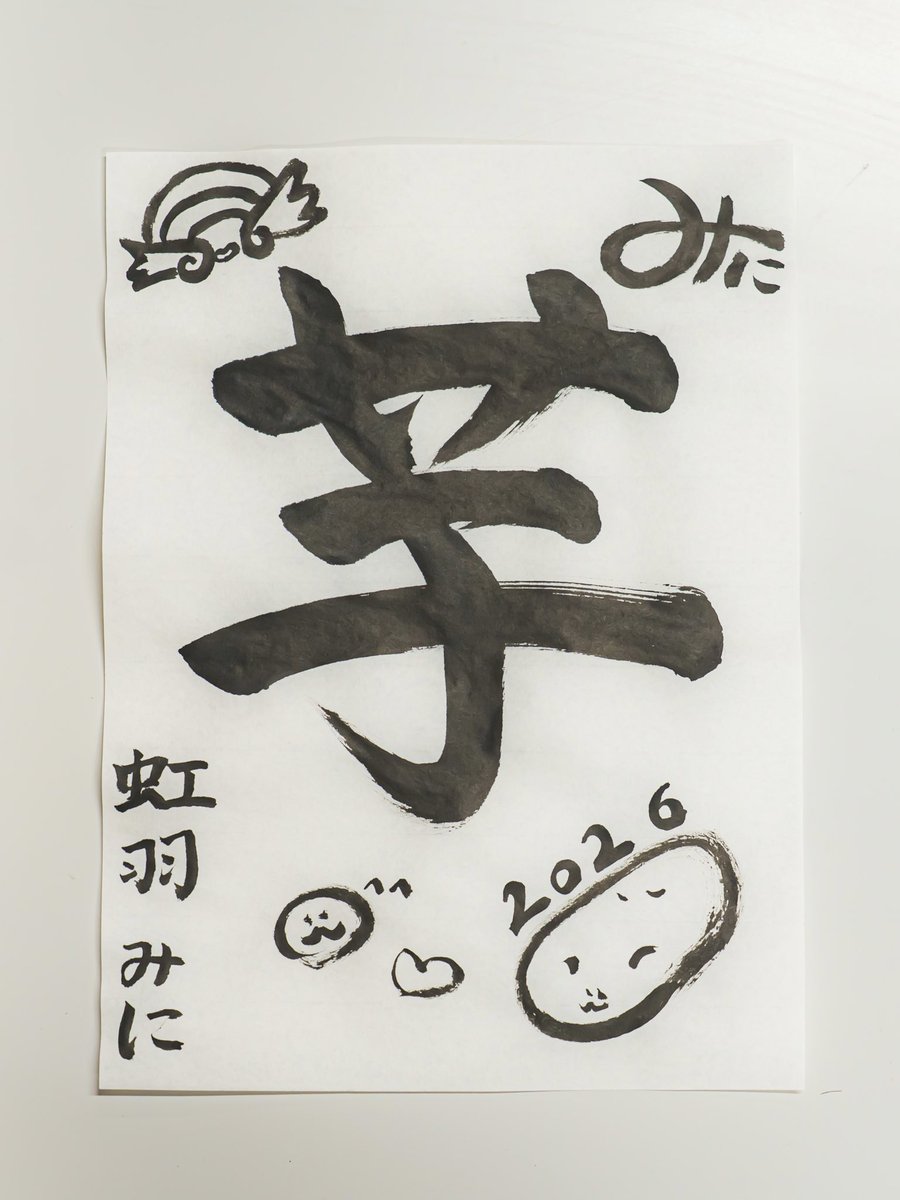 みに
芋
虹羽 みに
2026